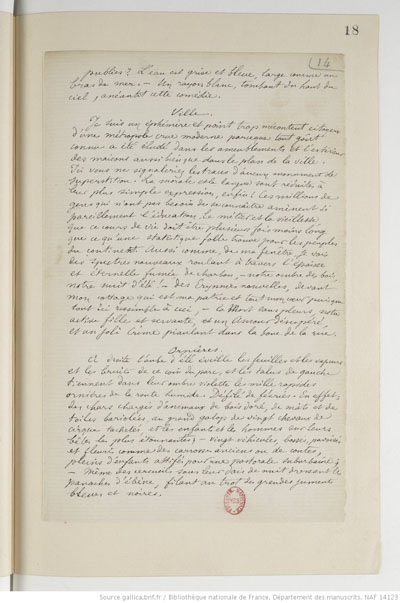 18
14
publics ? L'eau est grise et bleue, large comme un
bras de mer. — Un rayon blanc, tombant du haut du
ciel, anéantit cette comédie.
Ville.
Je suis un éphémère et point trop mécontent citoyen
d'une métropole crue moderne parce que tout goût
connu a été éludé dans les ameublements et l'extérieur
des maisons aussi bien que dans le plan de la ville.
Ici vous ne signaleriez les traces d'aucun monument de
superstition. La morale et la langue sont réduites à
leur plus simple expression, enfin ! Ces millions de
gens qui n'ont pas besoin de se connaître amènent si
pareillement l'éducation, le métier et la vieillesse
que ce cours de vie doit être plusieurs fois moins long
que ce qu'une statistique folle trouve pour les peuples
du continent. Aussi comme, de ma fenêtre, je vois
des spectres nouveaux roulant à travers l'épaisse
et éternelle fumée de charbon, — notre ombre des bois,
notre nuit d'été ! — des Erynnes nouvelles, devant
mon cottage qui est ma patrie et tout mon cœur puisque
tout ici ressemble à ceci, — la Mort sans pleurs, notre
active fille et servante, et un Amour désespéré
et un joli Crime piaulant dans la boue de la rue.
Ornières.
A droite l'aube d'été éveille les feuilles et les vapeurs
et les bruits de ce coin du parc, et les talus de gauche
tiennent dans leur ombre violette les mille rapides
ornières de la route humide. Défilé de féeries. En effet :
des chars chargés d'animaux de bois doré, de mâts et de
toiles bariolées, au grand galop de vingt chevaux de
cirque tachetés, et les enfants et les hommes sur leurs
bêtes les plus étonnantes ; — vingt véhicules, bossés, pavoisés
et fleuris comme des carrosses anciens ou de contes,
pleins d'enfants attifés pour une pastorale suburbaine ;
— Même des cercueils sous leur dais de nuit dressant les
panaches d'ébène, filant au trot des grandes juments
bleues et noires.
Source gallica.bnf.fr / Bibliothèque nationale de France, Département des manuscrits, NAF 14123